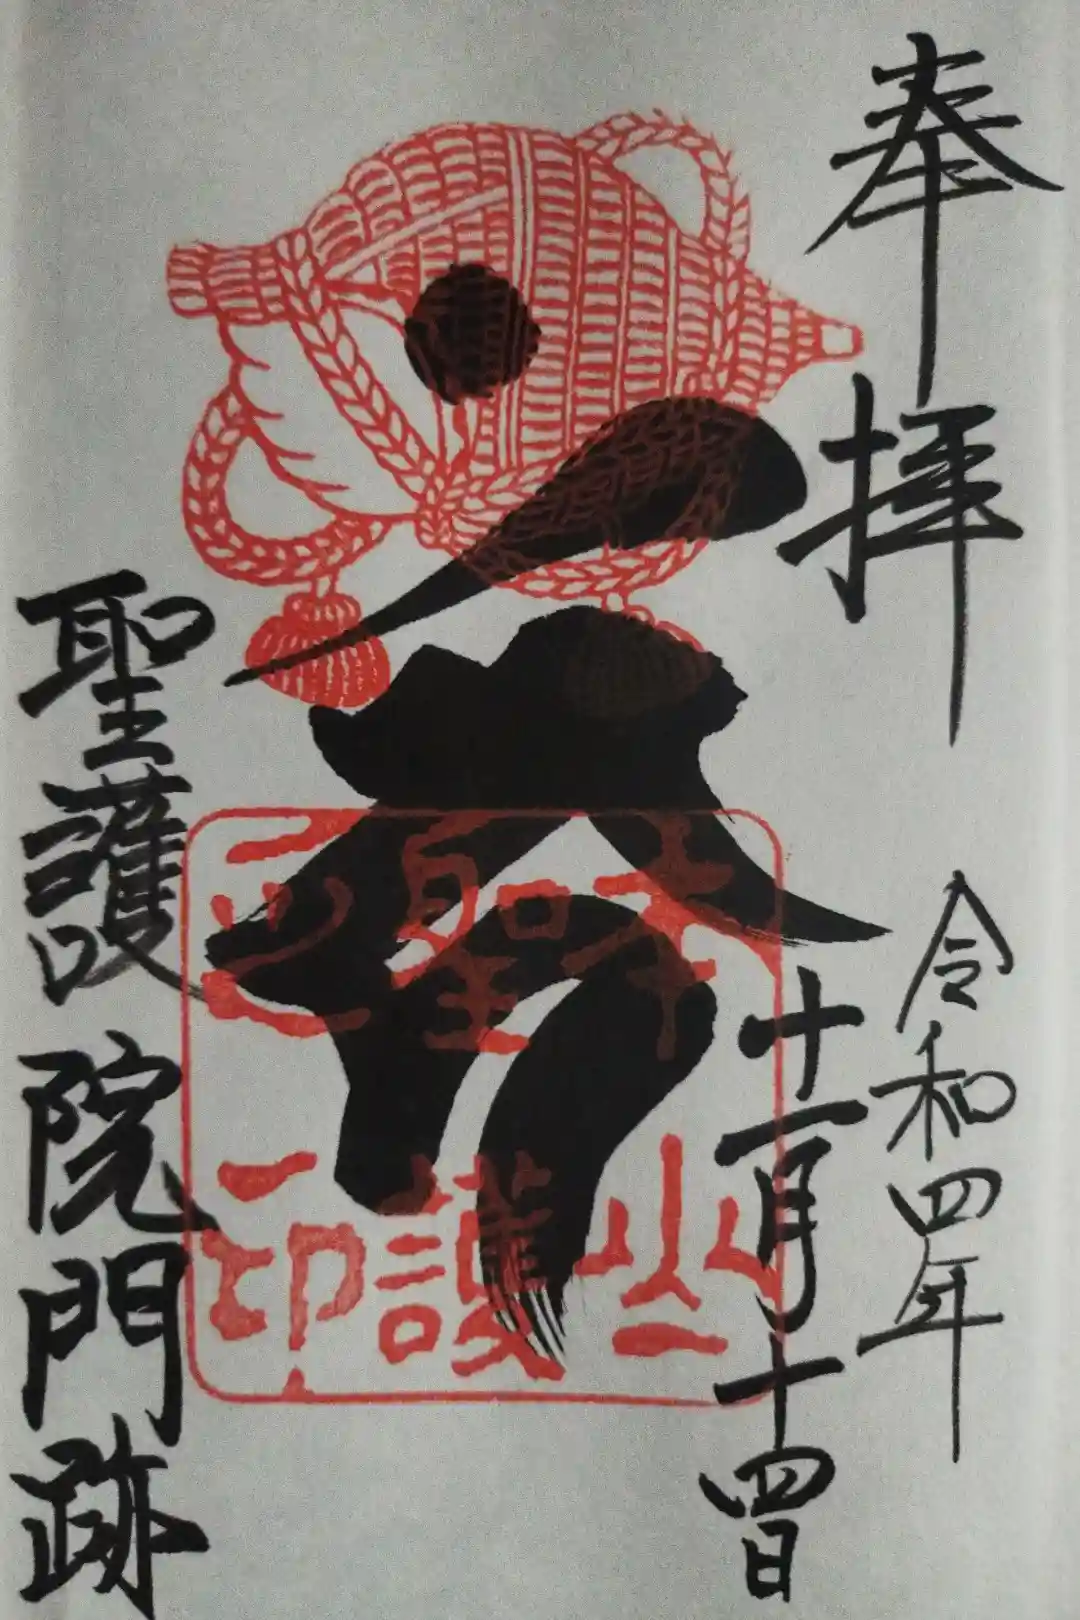 奉拝
令和四年
十一月十四日
本山
聖護
之印
聖護院門跡